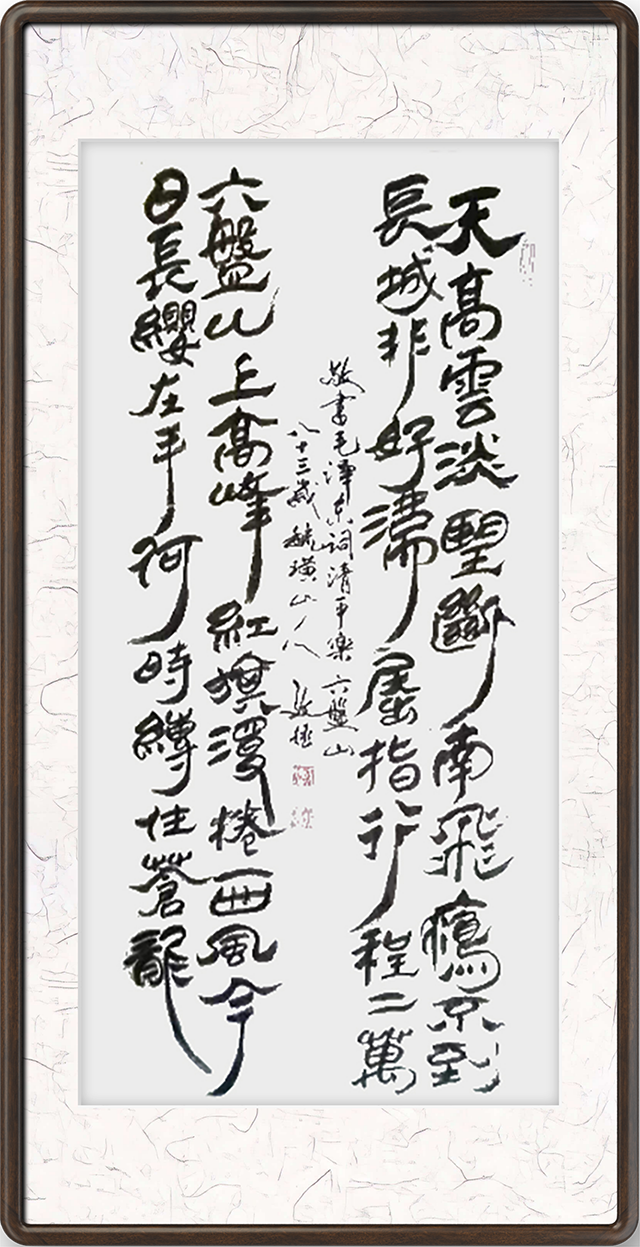 天高雲淡望斷南飛鴈不到
長城非好漢屈指行程二萬
敬書毛澤東詞清平樂六盤山
八十三歲璜山人
六盤山上高峰紅旗漫捲西風今
日長纓在手何時縛住蒼龍